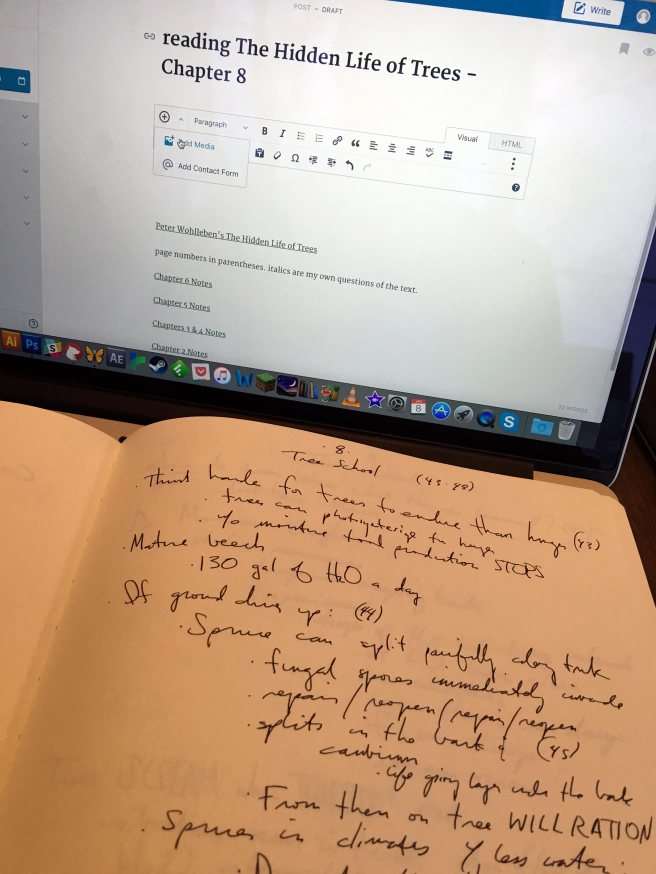 POST – DRAFT
Write
reading The Hidden Life of Trees –
Chapter 8
Paragraph
B I ABC
Visual HTML
Add Media
Add Contact Form
Peter Wohlleben's The Hidden Life of Trees
page numbers in parentheses. italics are my own questions of the text.
Chapter 6 Notes
Chapter 5 Notes
Chapters 3 & 4 Notes
Chapter 2 Notes
32 WORDS
Ai Ps S AE W 8 S
8.
Tree School (43-48)
· Thirst harder for trees to endure than hunger (43)
· trees can photosynthesize for hunger
· w/o moisture food production STOPS
· Mature beech
· 130 gal of H2O a day
· If ground dries up: (44)
· Spruce can split painfully along trunk
· fungal spores immediately invade
· repair/reopen/repair/reopen
· splits in the bark & (45)
cambium
· life giving layer under the bark
· From then on tree WILL RATION
· Spruces in climates w/ less water